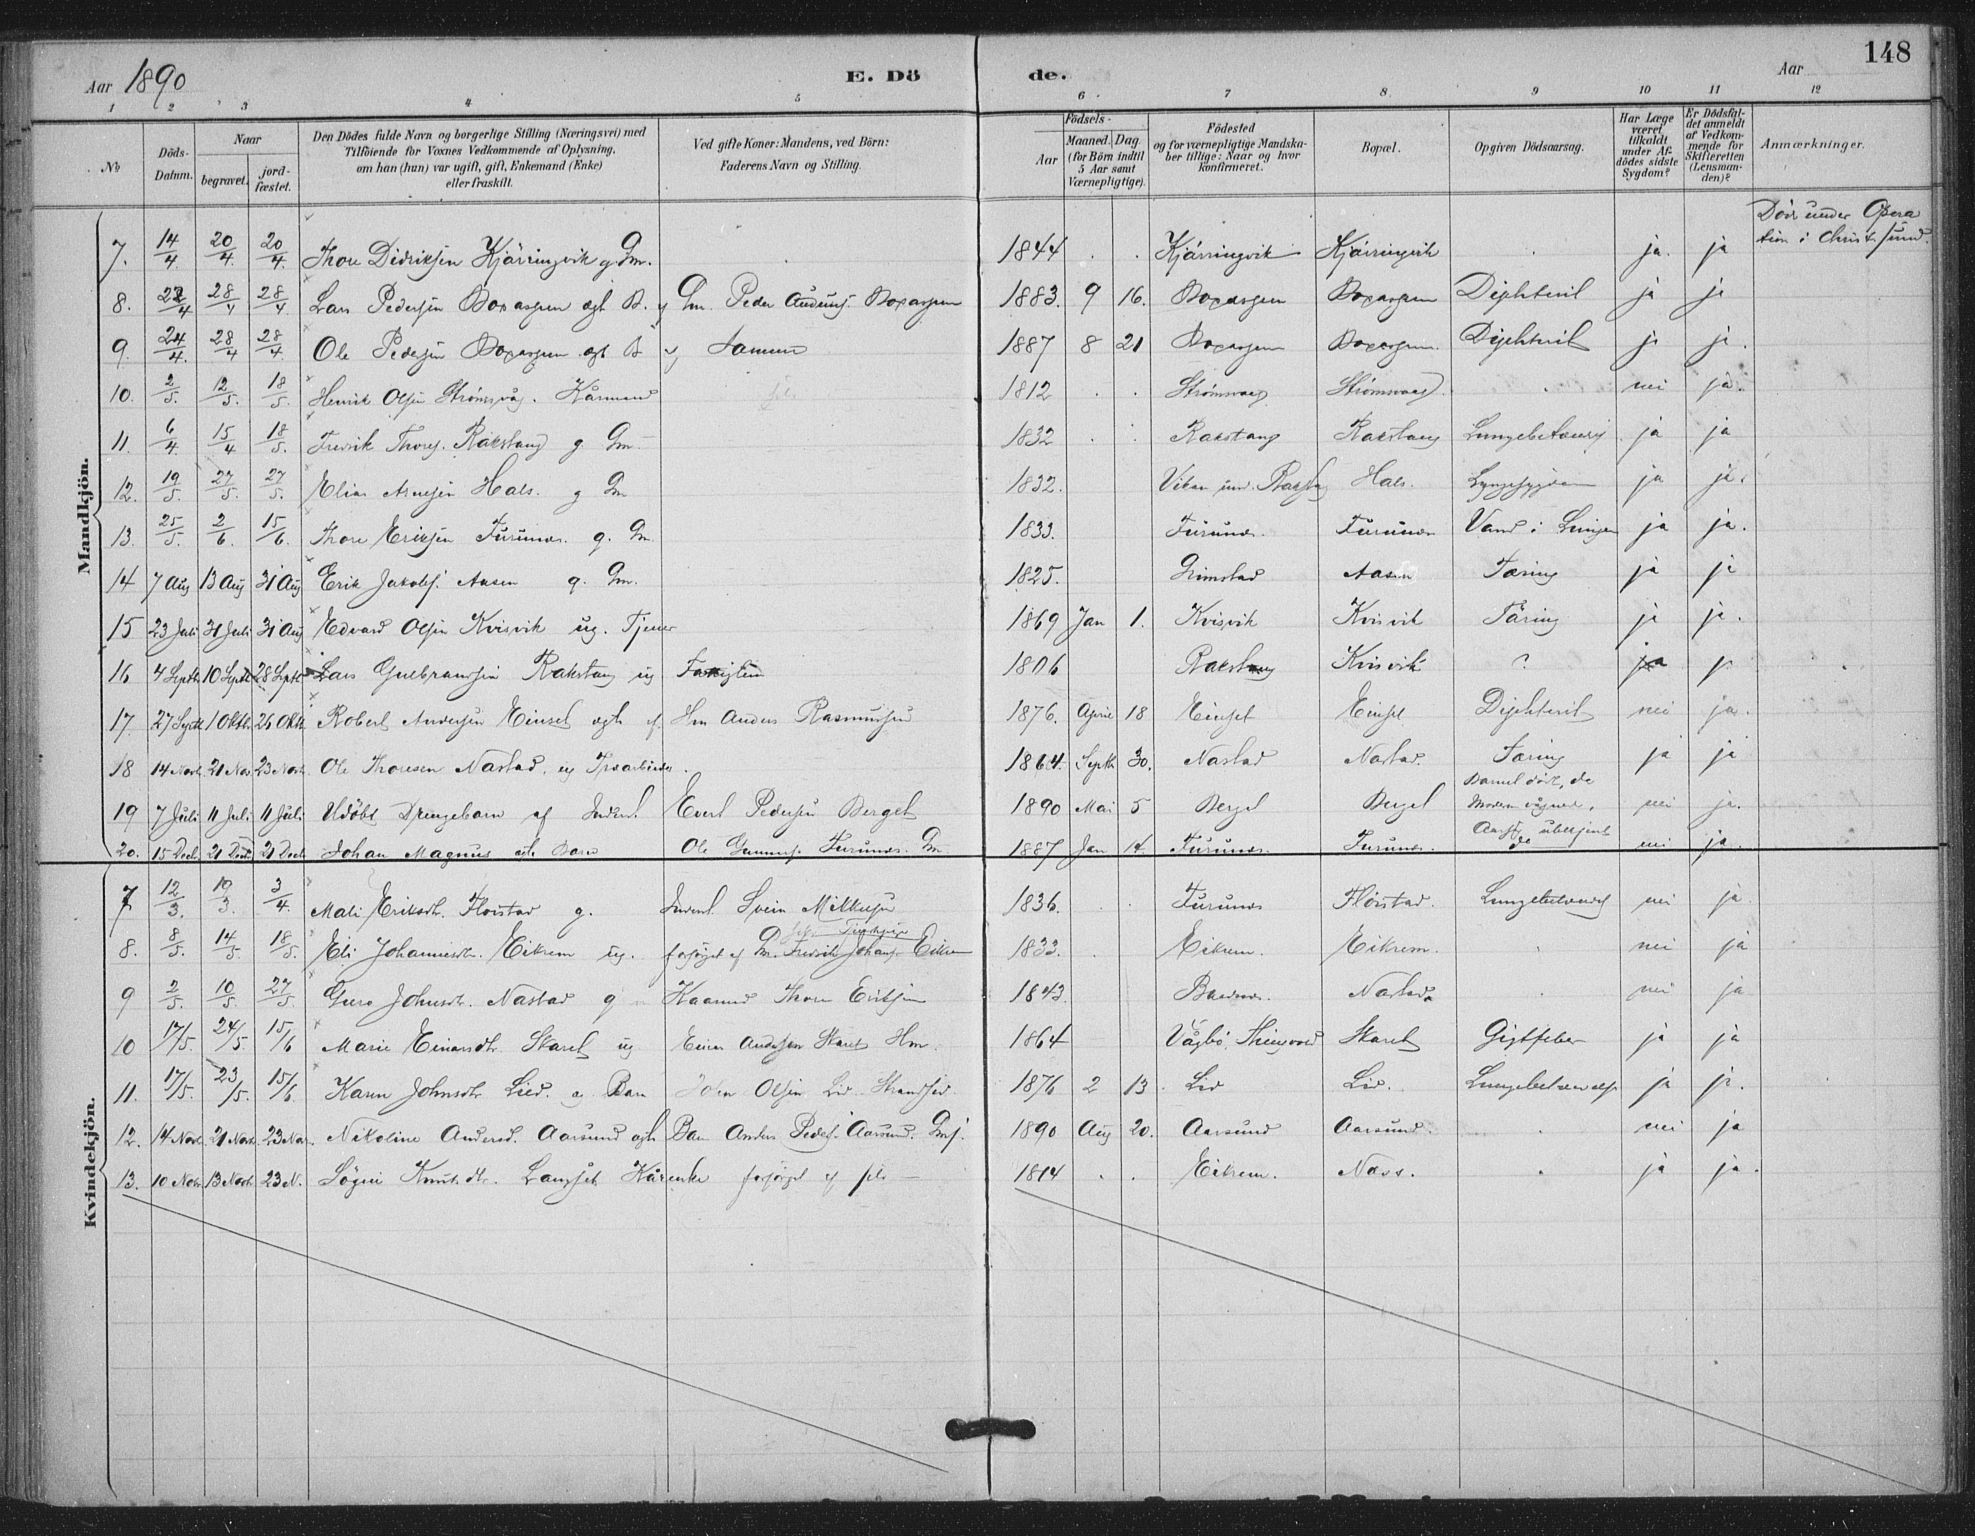 148
Aar 1890 E. Dö de. Aar
1 2 3 4 5 6 7 8 9 10 11 12
No
Döds-Datum.
Naar
begravet.
jord-fæstet.
Den Dödes fulde Navn og borgerlige Stilling (Næringsvei) med
Tilföiende for Voxnes Vedkommende af Oplysning,
om han (hun) var ugift, gift, Enkemand (Enke)
eller fraskilt.
Ved gifte Koner: Mandens, ved Börn:
Faderens Navn og Stilling.
Födsels-
Aar
Maaned. Dag
(for Börn indtil
5 Aar samt
Værnepligtige).
Födested
og for værnepligtige Mandska-
ber tillige: Naar og hvor
konfirmeret.
Bopæl.
Opgiven Dödsaarsag.
Har Læge
været
tilkaldt
under Af-
dödes sidste
Sygdom?
Er Dödsfal-
det anmeldt
af Vedkom-
mende for
Skifteretten
(Lensman-
den)?
Anmærkninger.
Mandkjön.
Död under Opera
tion i Christ.sund.
7. 14/4 20/4. 20/4. Thore Didriksen Kjärringvik g Gm. 1844 Kjärringvik Kjärringvik ja. ja
8. 22/4 28/4 28/4 Lars Pedersen ægt B. af Gm. Peder 1883. 9 16. Diphterit ja ja
9. 24/4. 28/4 28/4. Ole Pedersen ægt B af Samme 1887 8 21 Diphterit ja ja.
10. 2/5. 12/5. 18/5. Henrik Olsen Strömsvåg. Kårmand 1812 Strömsvaag Strömsvaag. nei ja.
11. 6/4. 15/4 18/5. Fredrik Thores. Rakstang g Gm 1832 Rakstang Rakstang ja ja
12. 19/5. 27/5. 27/5. Elias Arnesen Hals. g Gm 1832. Vikan und. Hals. ja ja.
13. 25/5. 2/6. 15/6. Thore Eriksen Furunes. g. Gm 1833. Furunes. Furunes Vand i Lungen ja ja.
14 7 Aug 13 Aug 31 Aug Erik Jakobs. Aasen g. Gm. 1825. Grimstad Aasen Tæring ja ja
15 23 Juli 31 Juli 31 Aug Edvard Olsen Kvisvik ug. Tjener 1869 Jan 1. Kvisvik Kvisvik Täring ja ja.
16 4 Septb. 10 Septb 28 Septb Lars Gulbransen Rakstang ug 1806 Rakstang Kvisvik ? ja
17 27 Septb 1 Oktb. 26 Oktb. Robert Andersen Einset ægt af. Hm Anders Rasmussen 1876. April 18 Einset Einset Diphterit nei ja.
18 14 Novb. 21 Nov. 23 Novb. Ole Thoresen Nastad. ug 1864. Septb 30. Nastad Nastad. Tæring ja ja
19 7 Juli 11 Juli 11 Juli Udöbt Drengebarn af Inderst Evert Pedersen Berget 1890 Mai 5 Berget Berget Barnet död, da Modern vågnede. nei ja.
20. 15 Decb. 21 Decb. 21 Decb. Johan Magnus ægte Barn Ole Gunnars. Furunes. Gm 1887 Jan 14. Furunes. Furunes. nei ja.
Kvindekjön.
7 12/3. 19/3. 3/4. Mali Eriksdt. Flöistad g. Inderst Svein Mikkelsen 1836. Furunes Flöistad. Lungebetænd. nei ja
8. 8/5. 14/5. 18/5. Eli Johannesdt. Eikrem ug. forsörget af Gm. Fredrik Johans. Eikrem 1833. Eikrem. Eikrem. nei ja
9 2/5. 10/5. 27/5 Guro Johnsdt. Nastad g Kaarmd Thore Eriksen 1843. Nastad. nei ja
10 17/5. 24/5. 15/6 Marie Einarsdt. Skaret ug Einar Andersen Skaret Hm. 1864 Vågbö, Thingvold Skaret Gigtfeber ja ja
11. 17/5. 23/5. 15/6. Karen Johnsdt. Lied. æ. Barn John Olsen Lid. Strandsid. 1876 2 13. Lid Lid. ja ja.
12. 14 Novb. 21 Novb. 23 Nov. Nikoline Andersd. Aarsund ægte Barn Anders Peders. Aarsund. 1890 Aug 20. Aarsund Aarsund. nei ja
13. 10 Novb. 13 Novb. 23 N. Lögni Knutsdt. Langset Kårenke forsörget af selv 1814 Eikrem. Næss. ja ja.